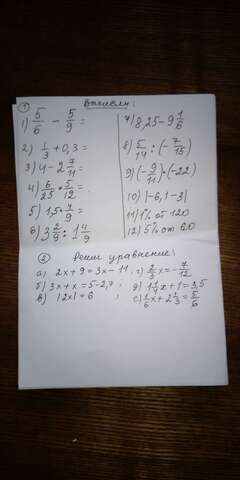 ① Вычисли:
1) 5/6 - 5/9 =
2) 1/3 + 0,3 =
3) 4 - 2 7/11 =
4) 6/25 * 5/12 =
5) 1,5 * 4/9 =
6) 3 2/9 : 1 4/9
7) 8,25 - 9 1/6
8) 5/14 : (- 7/15)
9) (- 9/11) * (-22)
10) |-6,1-3|
11) 1% от 120
12) 5% от 60
② Реши уравнение:
а) 2x + 9 = 3x - 11
б) 3x + x = 5 - 2,7
в) |2x| = 6
г) 2/3 x = - 7/12
x + 1 = 3,5
е) 1/6 x + 2 1/3 = 5/6